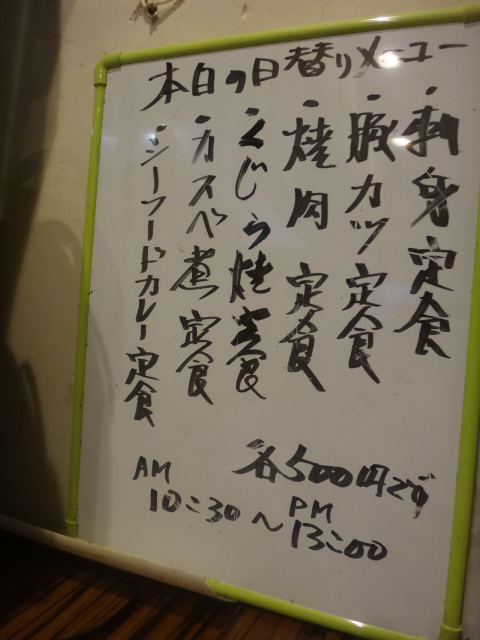 本日の日替りメニュー
・刺身定食
・豚カツ定食
・焼肉定食
・くじら焼定食
・カスベ煮定食
・シーフードカレー定食
各500円です
AM
10:30～PM
13:00